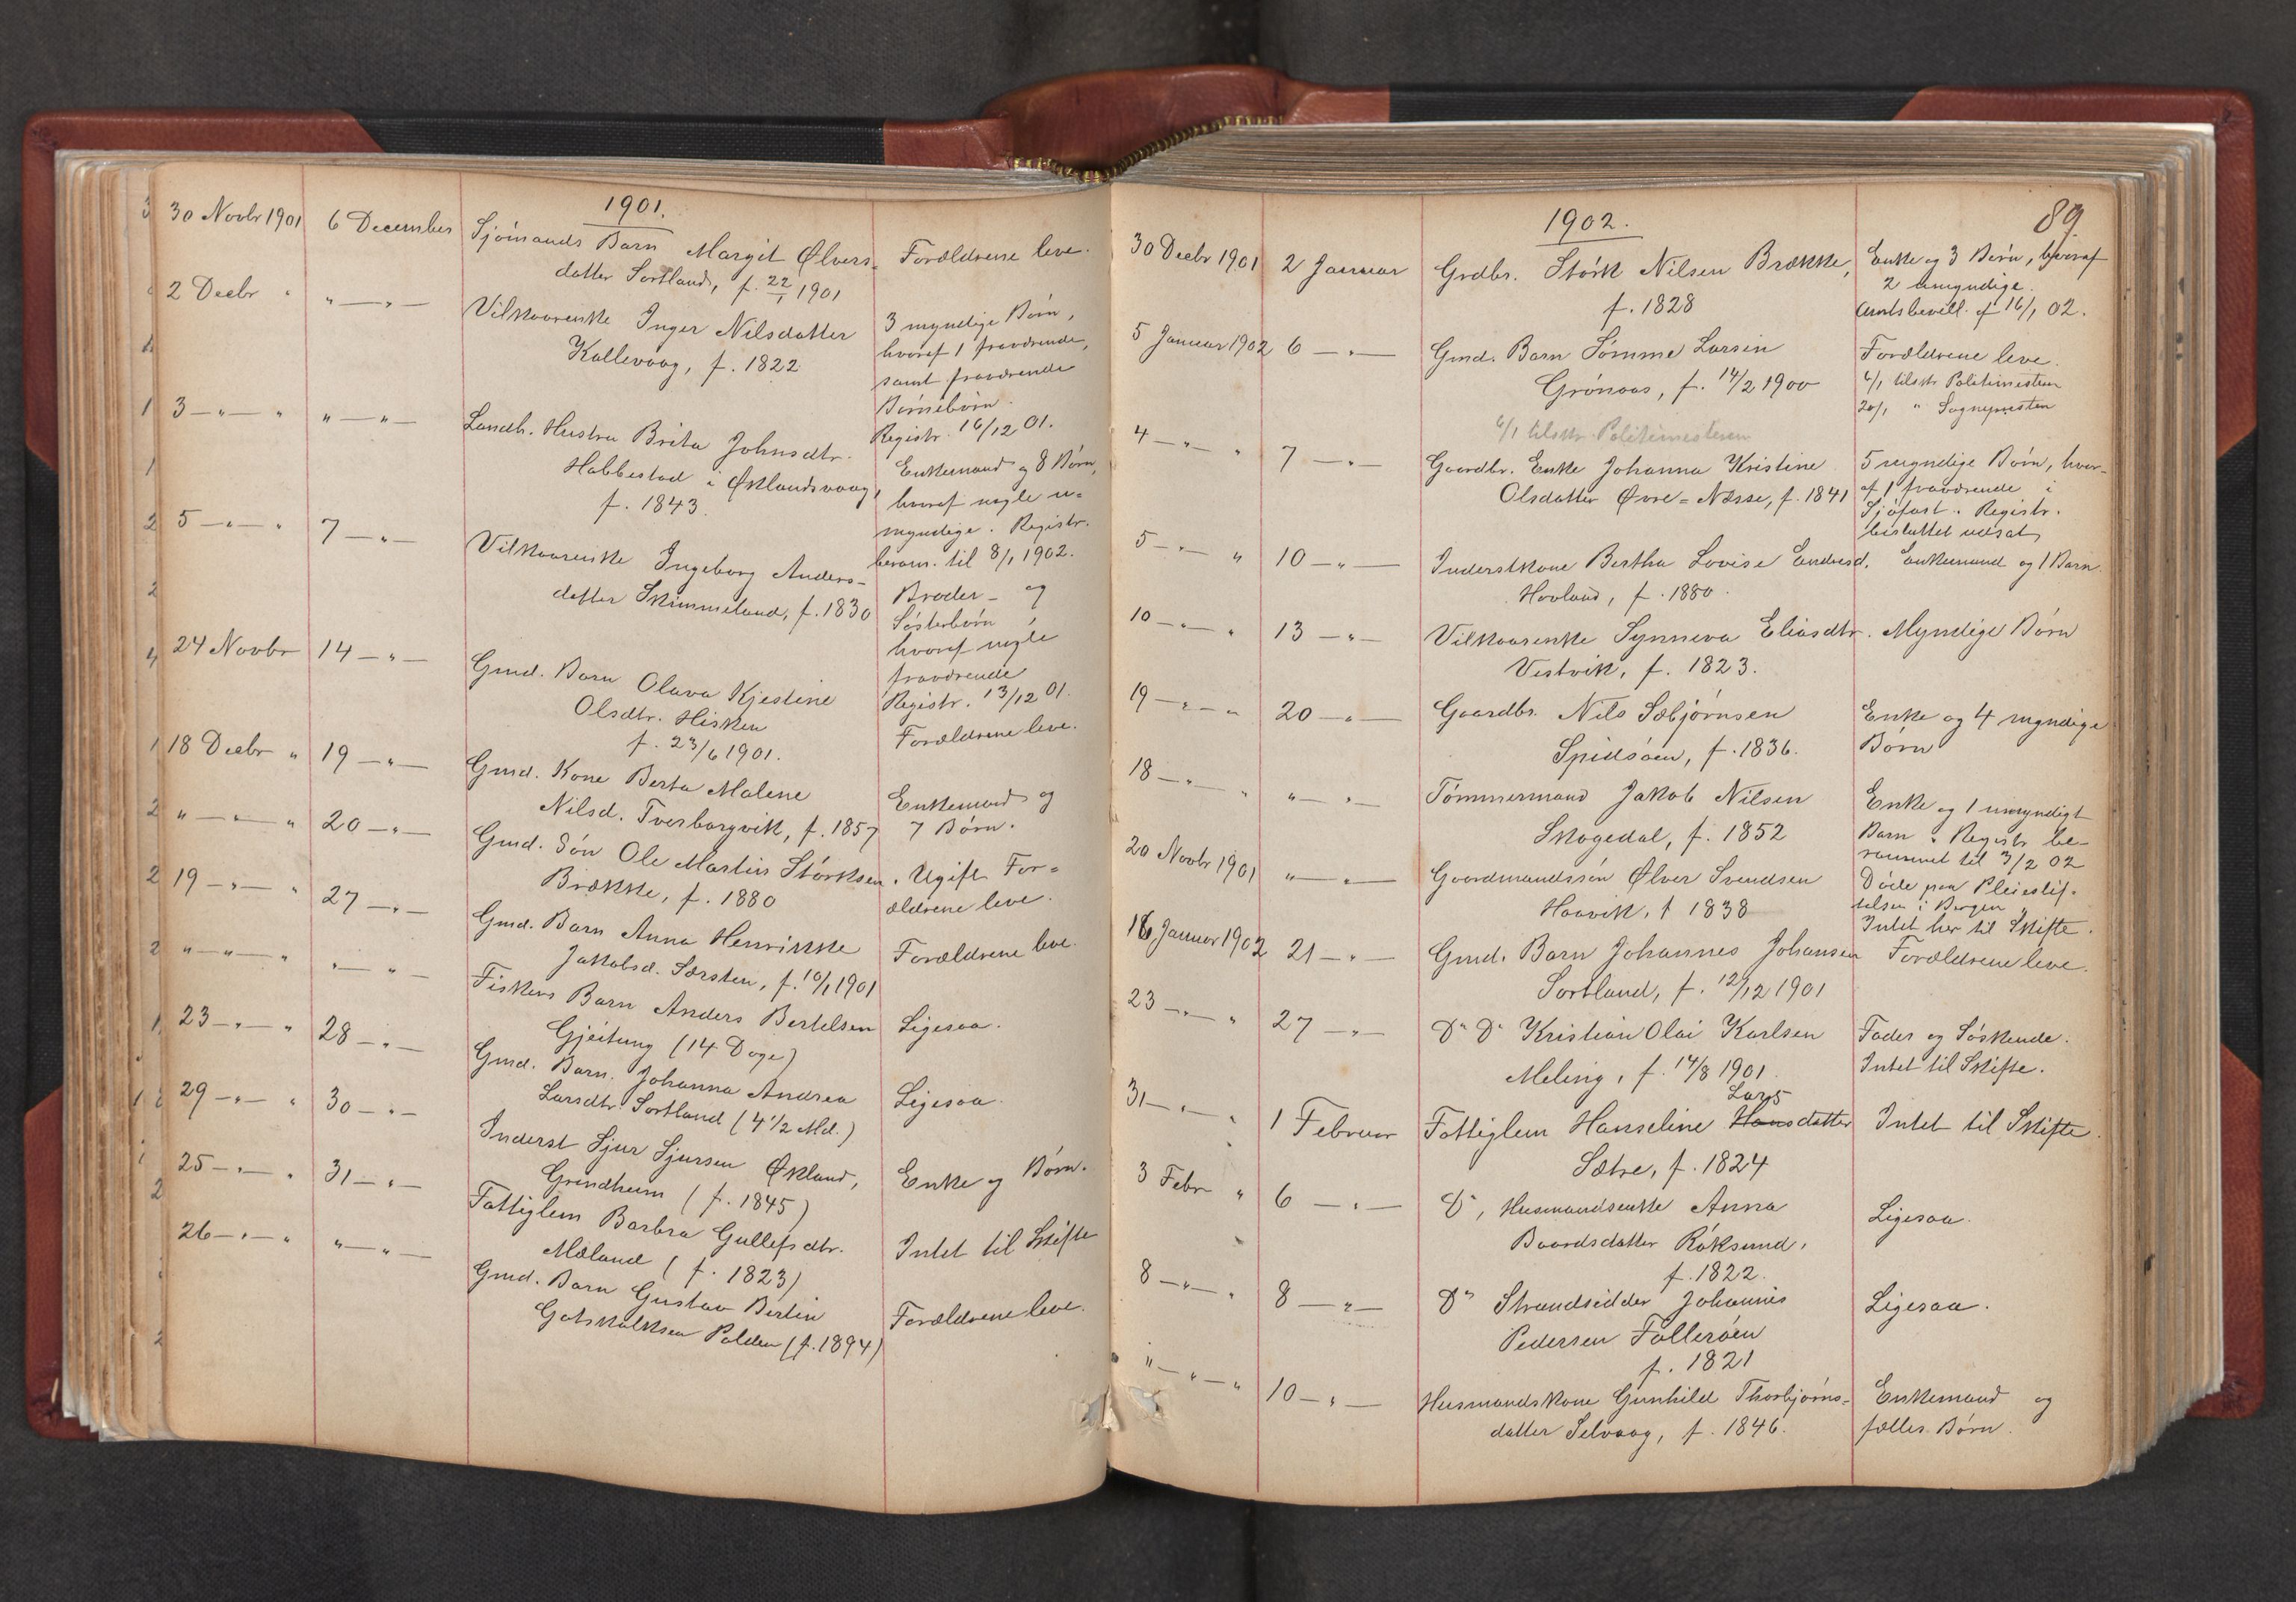 1901.
30 Novbr 1901 6 December Sjömands Barn Margit Ølvers= Forældrene leve.
datter Sortland, f. 22/1 1901
2 Decbr " " — " — Vilkaarenke Inger Nilsdatter 3 myndige Börn,
Kallevaag, f. 1822 hvoraf 1 fraværende,
samt fraværende
Börnebörn.
Registr. 16/12 01.
3 — " — " " — " — Landh. Hustru Brita Johnsdtr. Enkemand og 8 Börn,
Habbestad i Øklandsvaag, hvoraf nogle u=
f. 1843. myndige. Registr.
beram. til 8/1 1902.
5 — " — " 7 — " — Vilkaarenke Ingeborg Anders- Broder- og
datter Skimmeland, f. 1830 Sösterbörn,
hvoraf nogle
fraværende
Registr. 13/12 01.
24 Novbr 14 — " — Gmd. Barn Olava Kjestine Forældrene leve.
Olsdtr. Hisken
f. 23/6 1901.
18 Decbr " 19 — " — Gmd. Kone Berta Malene Enkemand og
Nilsd. Tverborgvik, f. 1857 7 Börn.
" — " — " 20 — " — Gmd. Sön Ole Martin Störksen Ugift. For=
Brække, f. 1880 ældrene leve.
19 — " — " 27 — " — Gmd. Barn Anna Henrikke Forældrene leve.
Jakobsd. Særsten, f. 10/1 1901
" — " — " " — " — Fiskers Barn Anders Bertelsen Ligesaa.
Gjeitung (14 Dage)
23 — " — " 28 — " — Gmd. Barn. Johanna Andrea Ligesaa.
Larsdtr. Sortland (4 1/2 Md.)
29 — " — " 30 — " — Inderst Sjur Sjursen Økland, Enke og Börn.
Grindheim (f. 1845)
25 — " — " 31 — " — Fattiglem Barbra Gullefsdtr. Intet til Skifte
Mæland (f. 1823)
26 — " — " " — " — Gmd. Barn Gustav Bertin Forældrene leve.
Gotskalksen Polden (f. 1894)
1902. 89
30 Decbr 1901 2 Januar Grdbr. Störk Nilsen Brække, Enke og 3 Börn, hvoraf
f. 1828 2 umyndige.
Amtsbevill. af 16/1 02.
5 Januar 1902 6 — " — Gmd. Barn Sömme Larsen Forældrene leve.
Grönaas, f. 14/2 1900 6/1 tilskr. Politimesteren
20/1 " Sognepresten
6/1 tilskr. Politimesteren
4 — " — " 7 — " — Gaardbr. Enke Johanna Kristine 5 myndige Börn, hvor-
Olsdatter Øvre=Næsse, f. 1841 af 1 fraværende i
Sjöfart. Registr.
besluttet udsat
5 — " — " 10 — " — Inderstkone Bertha Lovise Endresd. Enkemand og 1 Barn.
Hovland, f. 1880.
10 — " — " 13 — " — Vilkaarenke Synneva Eliasdtr. Myndige Börn
Vestvik, f. 1823.
19 — " — " 20 — " — Gaardbr. Nils Sæbjörnsen Enke og 4 myndige
Spidsöen, f. 1836. Börn
18 — " — " " — " — Tömmermand Jakob Nilsen Enke og 1 umyndigt
Skogedal, f. 1852 Barn. Registr. be-
rammet til 3/2 02
20 Novbr 1901 " — " — Gaardmandssön Ølver Svendsen Döde paa Pleiestif-
Haavik, f 1838 telsen i Bergen
Intet her til Skifte.
16 Januar 1902 21 — " — Gmd. Barn Johannes Johansen Forældrene leve.
Sortland, f. 12/12 1901
23 — " — " 27 — " — Do Do Kristian Olai Karlsen Fader og Söskende.
Meling, f. 14/8 1901. Intet til Skifte.
Lars
31 — " — " 1 Februar Fattiglem Hanseline Hansdatter Intet til Skifte.
Sætre, f. 1824
3 Febr " 6 — " — Do, Husmandsenke Anna Ligesaa.
Baardsdatter Röksund,
f. 1822.
8 — " — " 8 — " — Do Strandsidder Johannis Ligesaa.
Pedersen Folleröen
f. 1821
" — " — " 10 — " — Husmandskone Gunhild Thorbjörns- Enkemand og
datter Selvaag, f. 1846. fælles Börn.